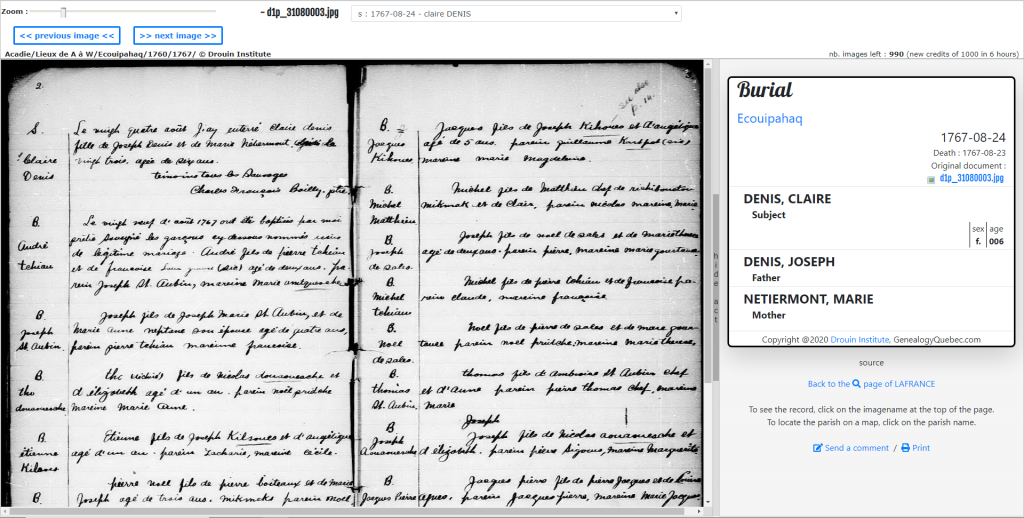 Zoom :
– d1p_31080003.jpg
s : 1767-08-24 - claire DENIS
<< previous image <<
>> next image >>
Acadie/Lieux de A à W/Ecouipahaq/1760/1767/ © Drouin Institute
nb. images left : 990 (new credits of 1000 in 6 hours)
2.
S.
Claire
Denis
Le vingt quatre août j'ay enterré Claire denis
fille de Joseph Denis et de Marie Netermont,
vingt trois, agée de six ans.
temoins tous les Sauvages
Charles François Bailly, ptre
B.
André
tchian
Le vingt neuf d'août 1767 ont été baptisés par moi
prêtre soussigné les garçons cy dessous nommés issus
de légitime mariage. André fils de pierre tchian
et de francoise (sic) agé de deux ans. pa-
rein Joseph St. Aubin, mareine Marie
B.
Joseph
St. Aubin.
Joseph fils de Joseph Marie St. Aubin, et de
Marie Anne neptane son épouse agé de quatre ans,
parein pierre tchian mareine francoise.
B.
tho
thc fils de Nicolas et
d'élizabeth agé d'un an. parein noël
Mareine Marie Anne.
B.
étienne
Kilsoues
Etienne fils de Joseph Kilsoues et d'angélique
agé d'un an. parein Zacharie, mareine Cécile.
B.
pierre noel fils de pierre boiteaux et de Marie
Joseph agé de trois ans. mikmaks parein noel
see also
p. 14.
B.
Jacques
Kilsoues
Jacques fils de Joseph Kilsoues et d'angélique
agé de 5 ans. parein guillaume (sic)
mareine marie Magdeleine.
B.
Michel
Matthieu
Michel fils de Matthieu chef de richibouctou
mikmak et de Clair, parein nicolas mareine Marie
B.
Joseph
de sales.
Joseph fils de noel de sales et de Marie
agé de deux ans. parein pierre, mareine marie
B.
Michel
tchian
Michel fils de pierre tchian et de francoise pa-
rein claude, mareine françoise
B.
Noel
de sales.
Noel fils de pierre de sales et de marie
parein noel mareine marie therese,
B.
thomas
St. Aubin.
thomas fils d'Ambroise St Aubin chef
et d'Anne parein pierre thomas chef. mareine
Marie
Joseph
B.
Joseph
Joseph fils de Nicolas
et d'élizabeth. parein pierre mareine Marguerite
B.
Jacques Pierre
Jacques pierre fils de pierre Jacques et de
agnes, parein Jacques pierre, mareine Marie Jacques
hide act
Burial
Ecouipahaq
1767-08-24
Death : 1767-08-23
Original document :
d1p_31080003.jpg
DENIS, CLAIRE
Subject
sex age
f. 006
DENIS, JOSEPH
Father
NETIERMONT, MARIE
Mother
Copyright @2020 Drouin Institute, GenealogyQuebec.com
source
Back to the page of LAFRANCE
To see the record, click on the imagename at the top of the page.
To locate the parish on a map, click on the parish name.
Send a comment / Print